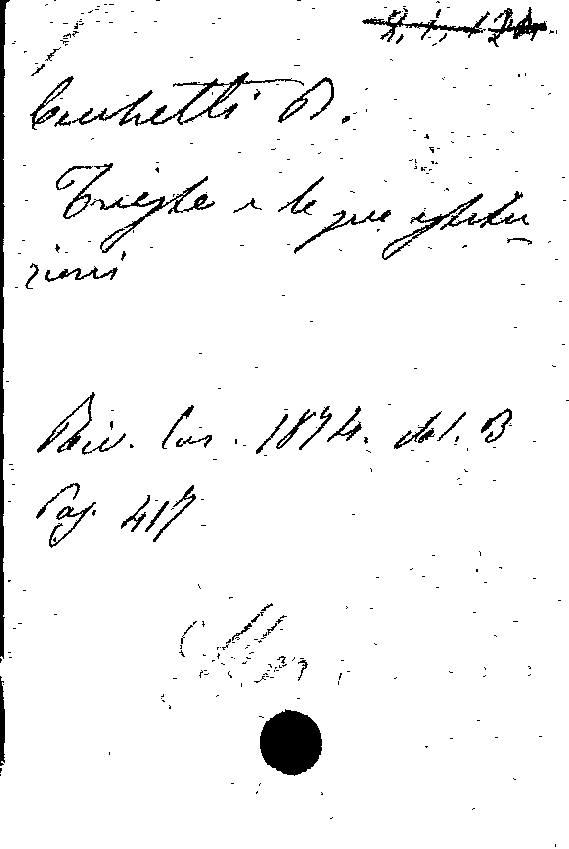 2, 1, 124
Cecchetti B.
Trieste e le sue istitu
zioni
Riv. Cur. 1874. vol. B
Pag. 417